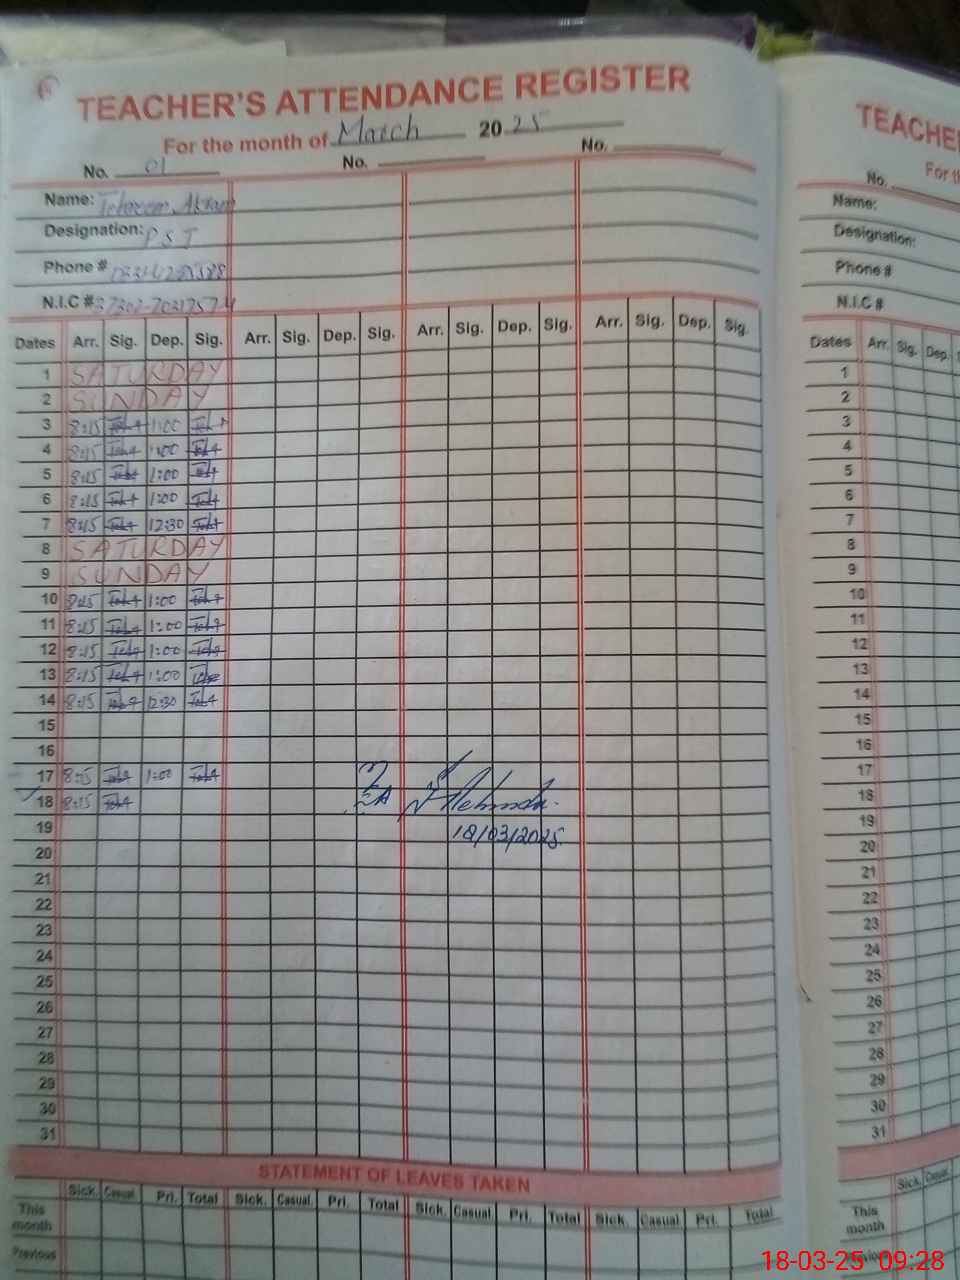 TEACHER'S ATTENDANCE REGISTER
For the month of March 2025
No. 01 No. No.
Name: Akram
Designation: PST
Phone #
N.I.C #
Dates Arr. Sig. Dep. Sig. Arr. Sig. Dep. Sig. Arr. Sig. Dep. Sig. Arr. Sig. Dep. Sig.
1 SATURDAY
2 SUNDAY
3 8:15 1:00
4 8:15 1:00
5 8:15 1:00
6 8:15 1:00
7 8:15 12:30
8 SATURDAY
9 SUNDAY
10 8:15 1:00
11 8:15 1:00
12 8:15 1:00
13 8:15 1:00
14 8:15 12:30
15
16
17 8:15 1:00
18 8:15
18/03/2025
19
20
21
22
23
24
25
26
27
28
29
30
31
STATEMENT OF LEAVES TAKEN
Sick. Casual. Pri. Total Sick. Casual. Pri. Total Sick. Casual. Pri. Total Sick. Casual. Pri. Total
This month
Previous
TEACHE
For th
No.
Name:
Designation:
Phone #
N.I.C #
Dates Arr. Sig. Dep.
1
2
3
4
5
6
7
8
9
10
11
12
13
14
15
16
17
18
19
20
21
22
23
24
25
26
27
28
29
30
31
Sick. Casual.
This month
18-03-25 09:28